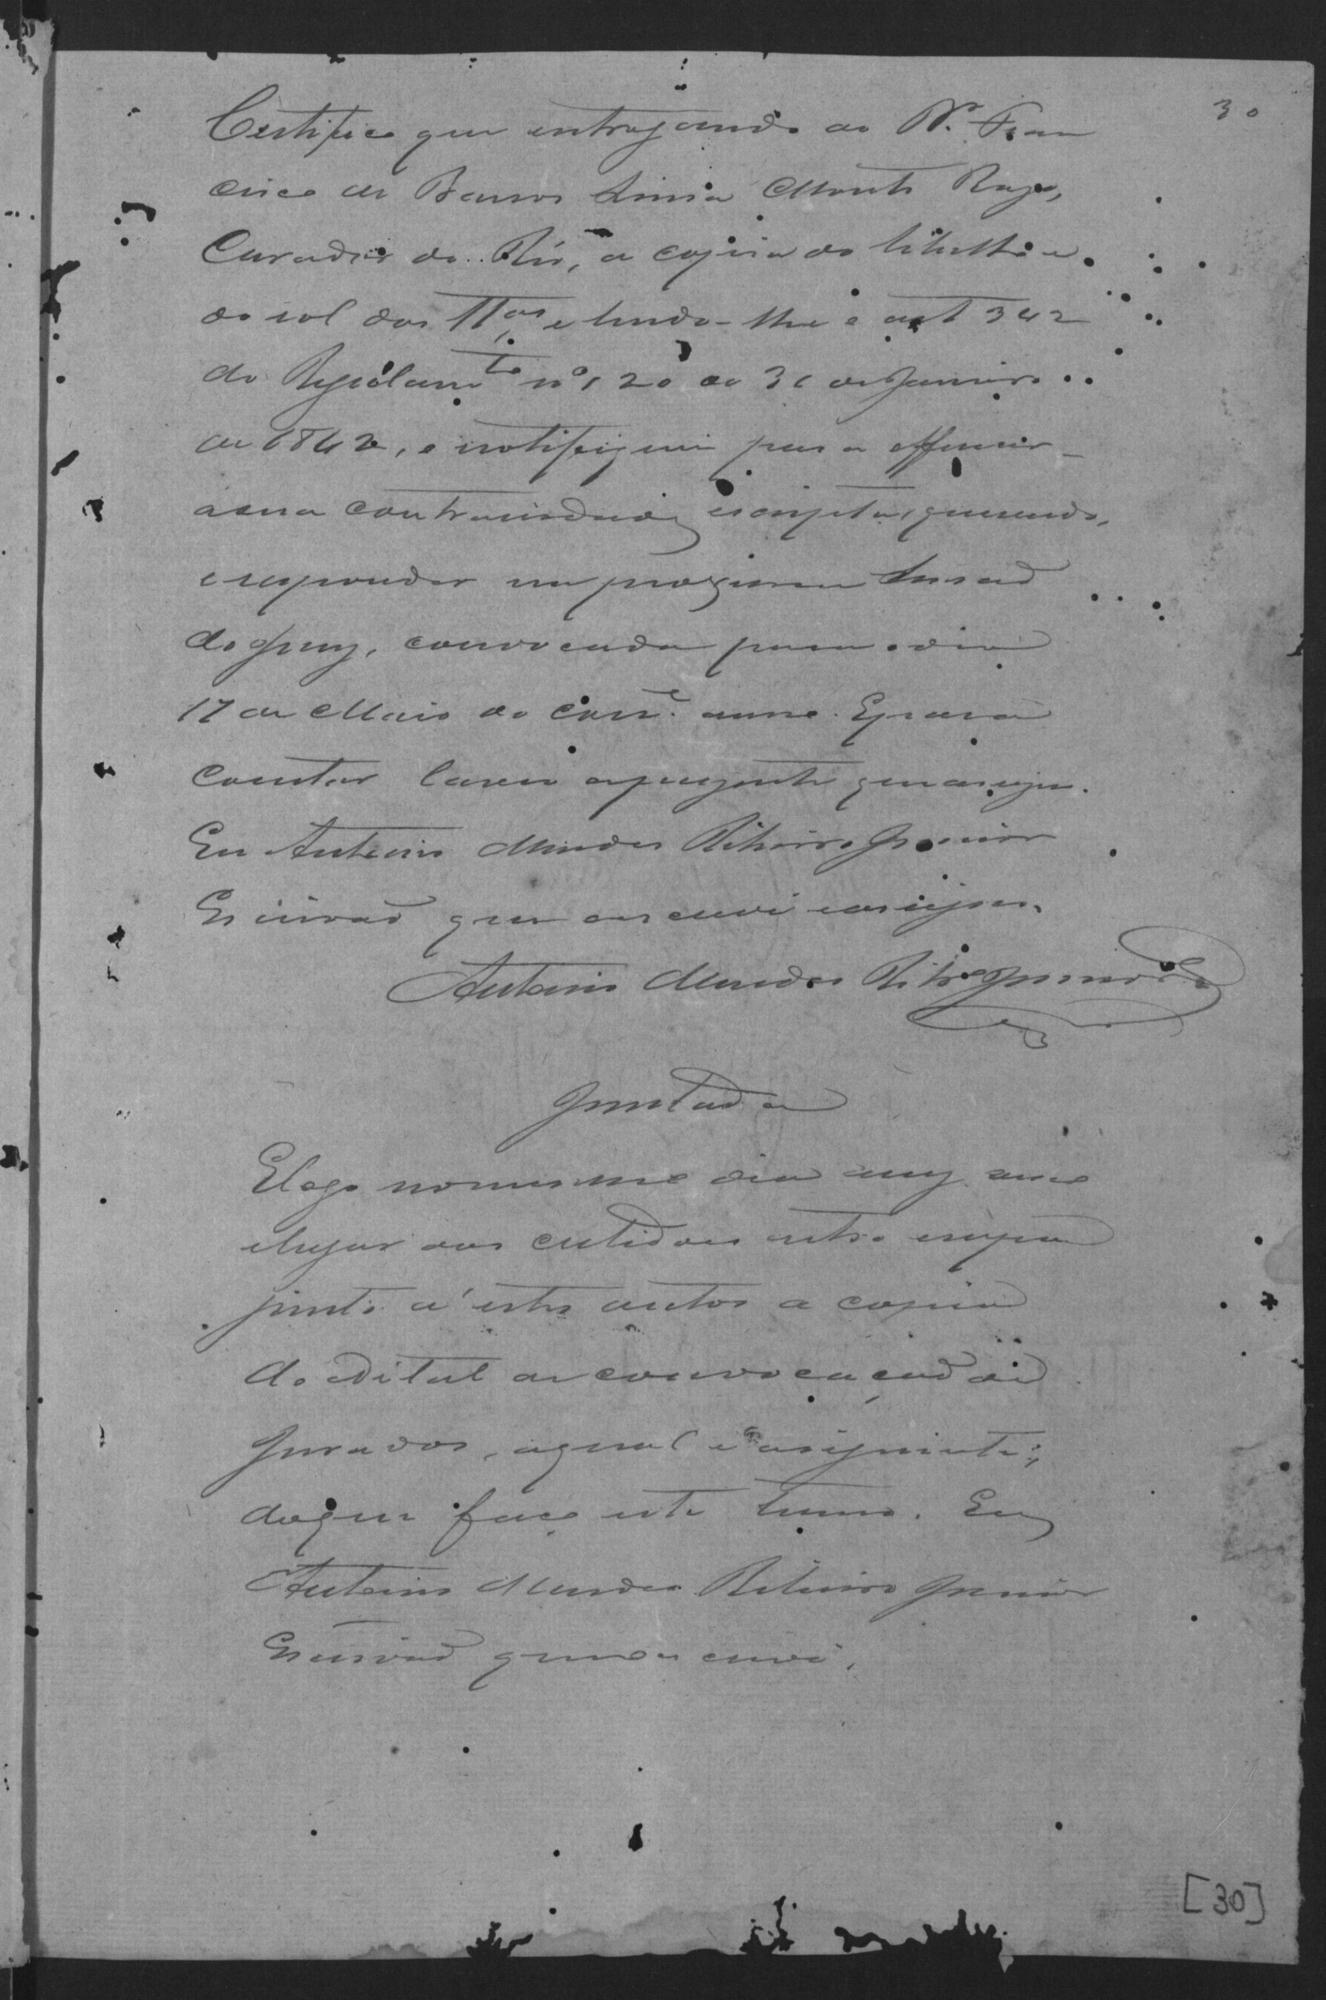 30
Certifico que entregando ao Dr. Fran
cisco de Barros Lima Monte Raso,
Curador do Réo, a copia do libello e
do rol das ttas e lendo-lhe o art 342
do Regulamto nº 120 de 31 de Janeiro
de 1842, o notifiquei para offerecer
a sua contrariedade escripta, querendo,
e responder na proxima Sessaõ
do Jury, convocada para o dia
17 de Maio do corre. anno. E para
constar lavrei a presente que assigno.
Eu Antonio Mendes Ribeiro Junior
Escrivaõ que escrevi e assigno.
Antonio Mendes Ribro Junior
Juntada
E logo no mesmo dia mez anno
e lugar das certidoes retro e supra
junto á estes autos a copia
do edital de convocaçaõ dos
Jurados, a qual é a seguinte;
do que faço este termo. Eu
Antonio Mendes Ribeiro Junior
Escrivaõ que o escrevi.
[30]